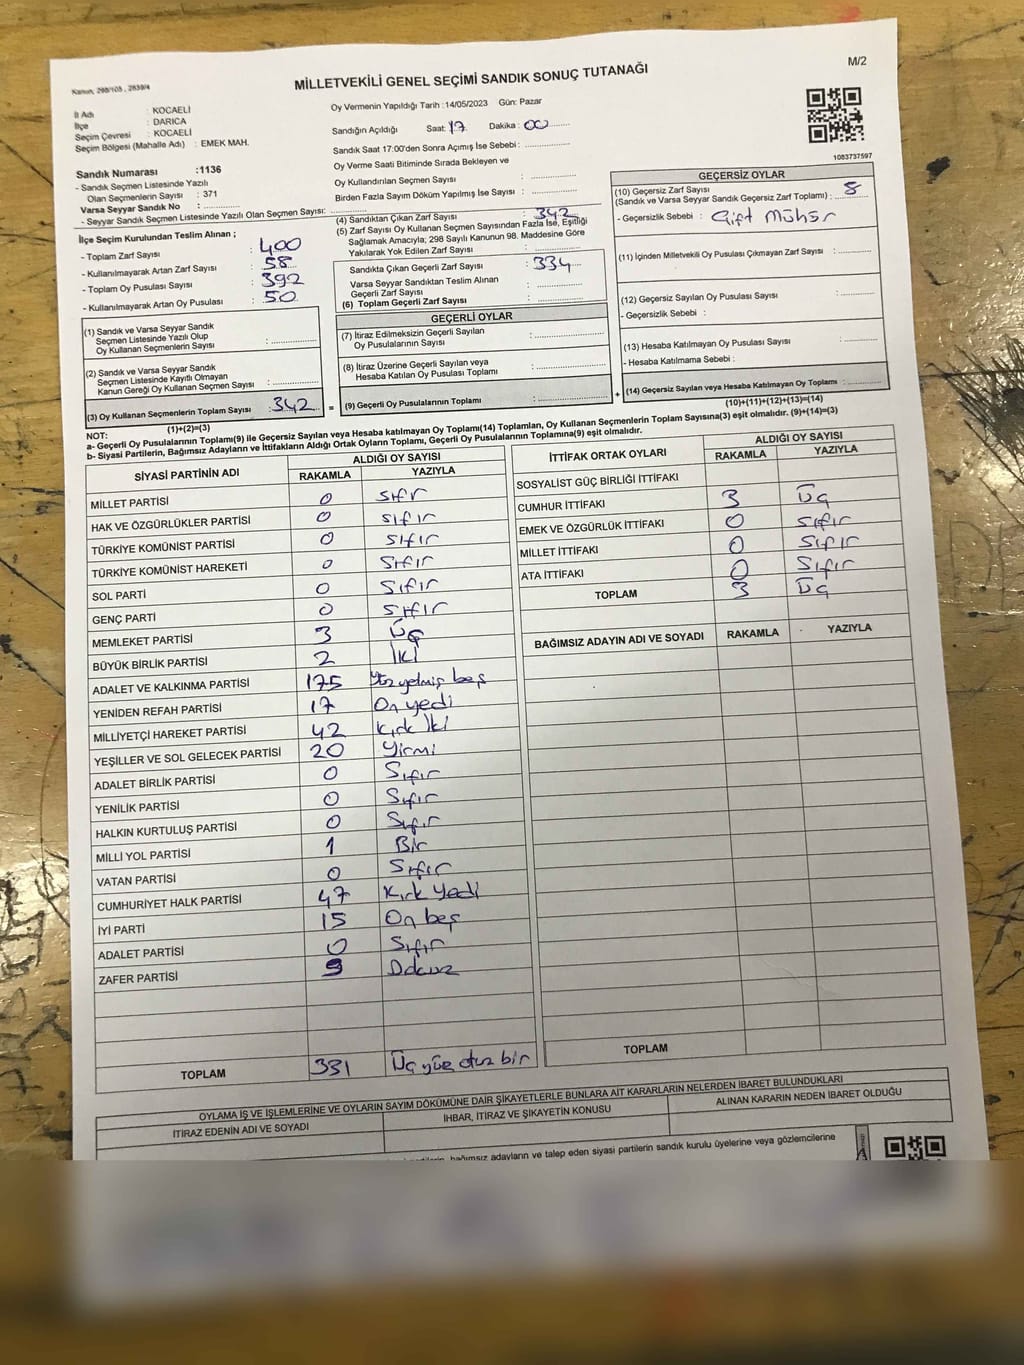 Kanun, 298/105, 2839/4
MİLLETVEKİLİ GENEL SEÇİMİ SANDIK SONUÇ TUTANAĞI
M/2
İl Adı : KOCAELİ
İlçe : DARICA
Seçim Çevresi : KOCAELİ
Seçim Bölgesi (Mahalle Adı) : EMEK MAH.
Sandık Numarası :1136
- Sandık Seçmen Listesinde Yazılı
Olan Seçmenlerin Sayısı : 371
Varsa Seyyar Sandık No :
- Seyyar Sandık Seçmen Listesinde Yazılı Olan Seçmen Sayısı:
İlçe Seçim Kurulundan Teslim Alınan ;
- Toplam Zarf Sayısı : 400
- Kullanılmayarak Artan Zarf Sayısı : 58
- Toplam Oy Pusulası Sayısı : 392
- Kullanılmayarak Artan Oy Pusulası : 50
(1) Sandık ve Varsa Seyyar Sandık
Seçmen Listesinde Yazılı Olup
Oy Kullanan Seçmenlerin Sayısı :
(2) Sandık ve Varsa Seyyar Sandık
Seçmen Listesinde Kayıtlı Olmayan
Kanun Gereği Oy Kullanan Seçmen Sayısı :
(3) Oy Kullanan Seçmenlerin Toplam Sayısı : 342
(1)+(2)=(3)
=
Oy Vermenin Yapıldığı Tarih :14/05/2023 Gün: Pazar
Sandığın Açıldığı Saat: 17 Dakika : 00
Sandık Saat 17:00'den Sonra Açımış İse Sebebi :
Oy Verme Saati Bitiminde Sırada Bekleyen ve
Oy Kullandırılan Seçmen Sayısı :
Birden Fazla Sayım Döküm Yapılmış İse Sayısı :
(4) Sandıktan Çıkan Zarf Sayısı : 342
(5) Zarf Sayısı Oy Kullanan Seçmen Sayısından Fazla İse, Eşitliği
Sağlamak Amacıyla; 298 Sayılı Kanunun 98. Maddesine Göre
Yakılarak Yok Edilen Zarf Sayısı :
Sandıkta Çıkan Geçerli Zarf Sayısı : 334
Varsa Seyyar Sandıktan Teslim Alınan
Geçerli Zarf Sayısı :
(6) Toplam Geçerli Zarf Sayısı :
GEÇERLİ OYLAR
(7) İtiraz Edilmeksizin Geçerli Sayılan
Oy Pusulasının Sayısı :
(8) İtiraz Üzerine Geçerli Sayılan veya
Hesaba Katılan Oy Pusulası Toplamı :
(9) Geçerli Oy Pusulalarının Toplamı :
+
1083737597
GEÇERSİZ OYLAR
(10) Geçersiz Zarf Sayısı
(Sandık ve Varsa Seyyar Sandık Geçersiz Zarf Toplamı) : 8
- Geçersizlik Sebebi : Çift Mühür
(11) İçinden Milletvekili Oy Pusulası Çıkmayan Zarf Sayısı :
(12) Geçersiz Sayılan Oy Pusulası Sayısı :
- Geçersizlik Sebebi :
(13) Hesaba Katılmayan Oy Pusulası Sayısı :
- Hesaba Katılmama Sebebi :
(14) Geçersiz Sayılan veya Hesaba Katılmayan Oy Toplamı :
(10)+(11)+(12)+(13)=(14)
NOT:
a- Geçerli Oy Pusulalarının Toplamı(9) ile Geçersiz Sayılan veya Hesaba Katılmayan Oy Toplamı(14) Toplamları, Oy Kullanan Seçmenlerin Toplam Sayısına(3) eşit olmalıdır. (9)+(14)=(3)
b- Siyasi Partilerin, Bağımsız Adayların ve İttifakların Aldığı Ortak Oyların Toplamı, Geçerli Oy Pusulalarının Toplamına(9) eşit olmalıdır.
SİYASİ PARTİNİN ADI ALDIĞI OY SAYISI
RAKAMLA YAZIYLA
MİLLET PARTİSİ 0 sıfır
HAK VE ÖZGÜRLÜKLER PARTİSİ 0 sıfır
TÜRKİYE KOMÜNİST PARTİSİ 0 sıfır
TÜRKİYE KOMÜNİST HAREKETİ 0 sıfır
SOL PARTİ 0 sıfır
GENÇ PARTİ 0 sıfır
MEMLEKET PARTİSİ 3 Üç
BÜYÜK BİRLİK PARTİSİ 2 İki
ADALET VE KALKINMA PARTİSİ 175 Yüz yetmiş beş
YENİDEN REFAH PARTİSİ 17 On yedi
MİLLİYETÇİ HAREKET PARTİSİ 42 Kırk İki
YEŞİLLER VE SOL GELECEK PARTİSİ 20 Yirmi
ADALET BİRLİK PARTİSİ 0 Sıfır
YENİLİK PARTİSİ 0 Sıfır
HALKIN KURTULUŞ PARTİSİ 0 Sıfır
MİLLİ YOL PARTİSİ 1 Bir
VATAN PARTİSİ 0 Sıfır
CUMHURİYET HALK PARTİSİ 47 Kırk Yedi
İYİ PARTİ 15 On beş
ADALET PARTİSİ 0 Sıfır
ZAFER PARTİSİ 9 Dokuz
TOPLAM 331 Üç yüz otuz bir
İTTİFAK ORTAK OYLARI ALDIĞI OY SAYISI
RAKAMLA YAZIYLA
SOSYALİST GÜÇ BİRLİĞİ İTTİFAKI
CUMHUR İTTİFAKI 3 Üç
EMEK VE ÖZGÜRLÜK İTTİFAKI 0 Sıfır
MİLLET İTTİFAKI 0 Sıfır
ATA İTTİFAKI 0 Sıfır
TOPLAM 3 Üç
BAĞIMSIZ ADAYIN ADI VE SOYADI RAKAMLA YAZIYLA
TOPLAM
OYLAMA İŞ VE İŞLEMLERİNE VE OYLARIN SAYIM DÖKÜMÜNE DAİR ŞİKAYETLERLE BUNLARA AİT KARARLARIN NELERDEN İBARET BULUNDUKLARI
İTİRAZ EDENİN ADI VE SOYADI İHBAR, İTİRAZ VE ŞİKAYETİN KONUSU ALINAN KARARIN NEDEN İBARET OLDUĞU
bağımsız adayların ve talep eden siyasi partilerin sandık kurulu üyelerine veya gözlemcilerine